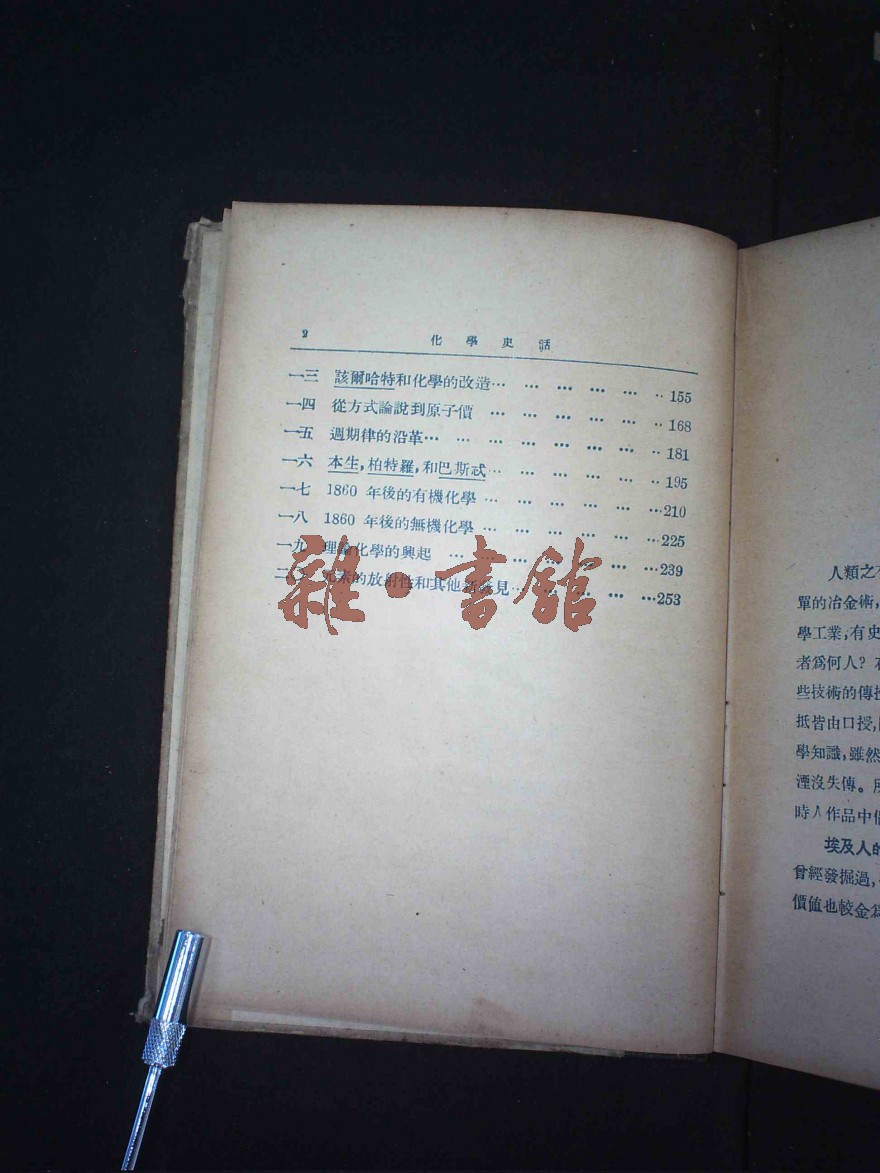 2 化學史話
一三 該爾哈特和化學的改造… … … … … ‥155
一四 從方式論說到原子價 … … … … … ‥168
一五 週期律的沿革… … … … … … ‥181
一六 本生，柏特羅，和巴斯忒… … … … … …195
一七 1860 年後的有機化學 … … … … … …210
一八 1860 年後的無機化學 … … … … … …225
一九 理論化學的興起 … … … … … …239
二〇 元素的放射性和其他新發見… … … … …253
雜·書館
人類之
單的冶金術，
學工業，有史
者爲何人？
些技術的傳
抵皆由口授，
學知識，雖然
湮沒失傳。
時人作品中
埃及人的
曾經發掘過，
價值也較金